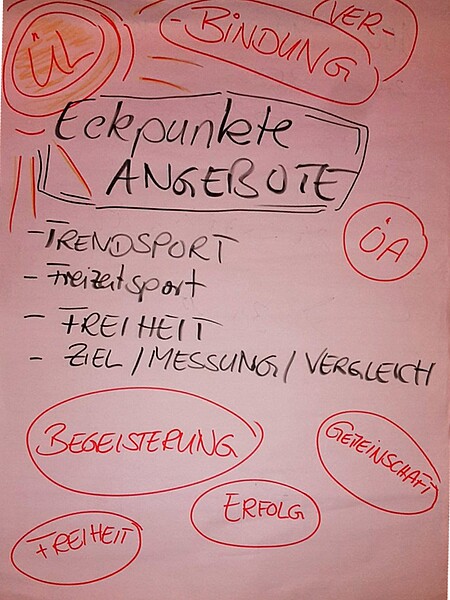 ÜL
(VER-
- BINDUNG
Eckpunkte
ANGEBOTE
- TRENDSPORT
ÖA
- Freizeitsport
- FREIHEIT
- ZIEL / MESSUNG / VERGLEICH
BEGEISTERUNG
GEMEINSCHAFT
ERFOLG
FREIHEIT